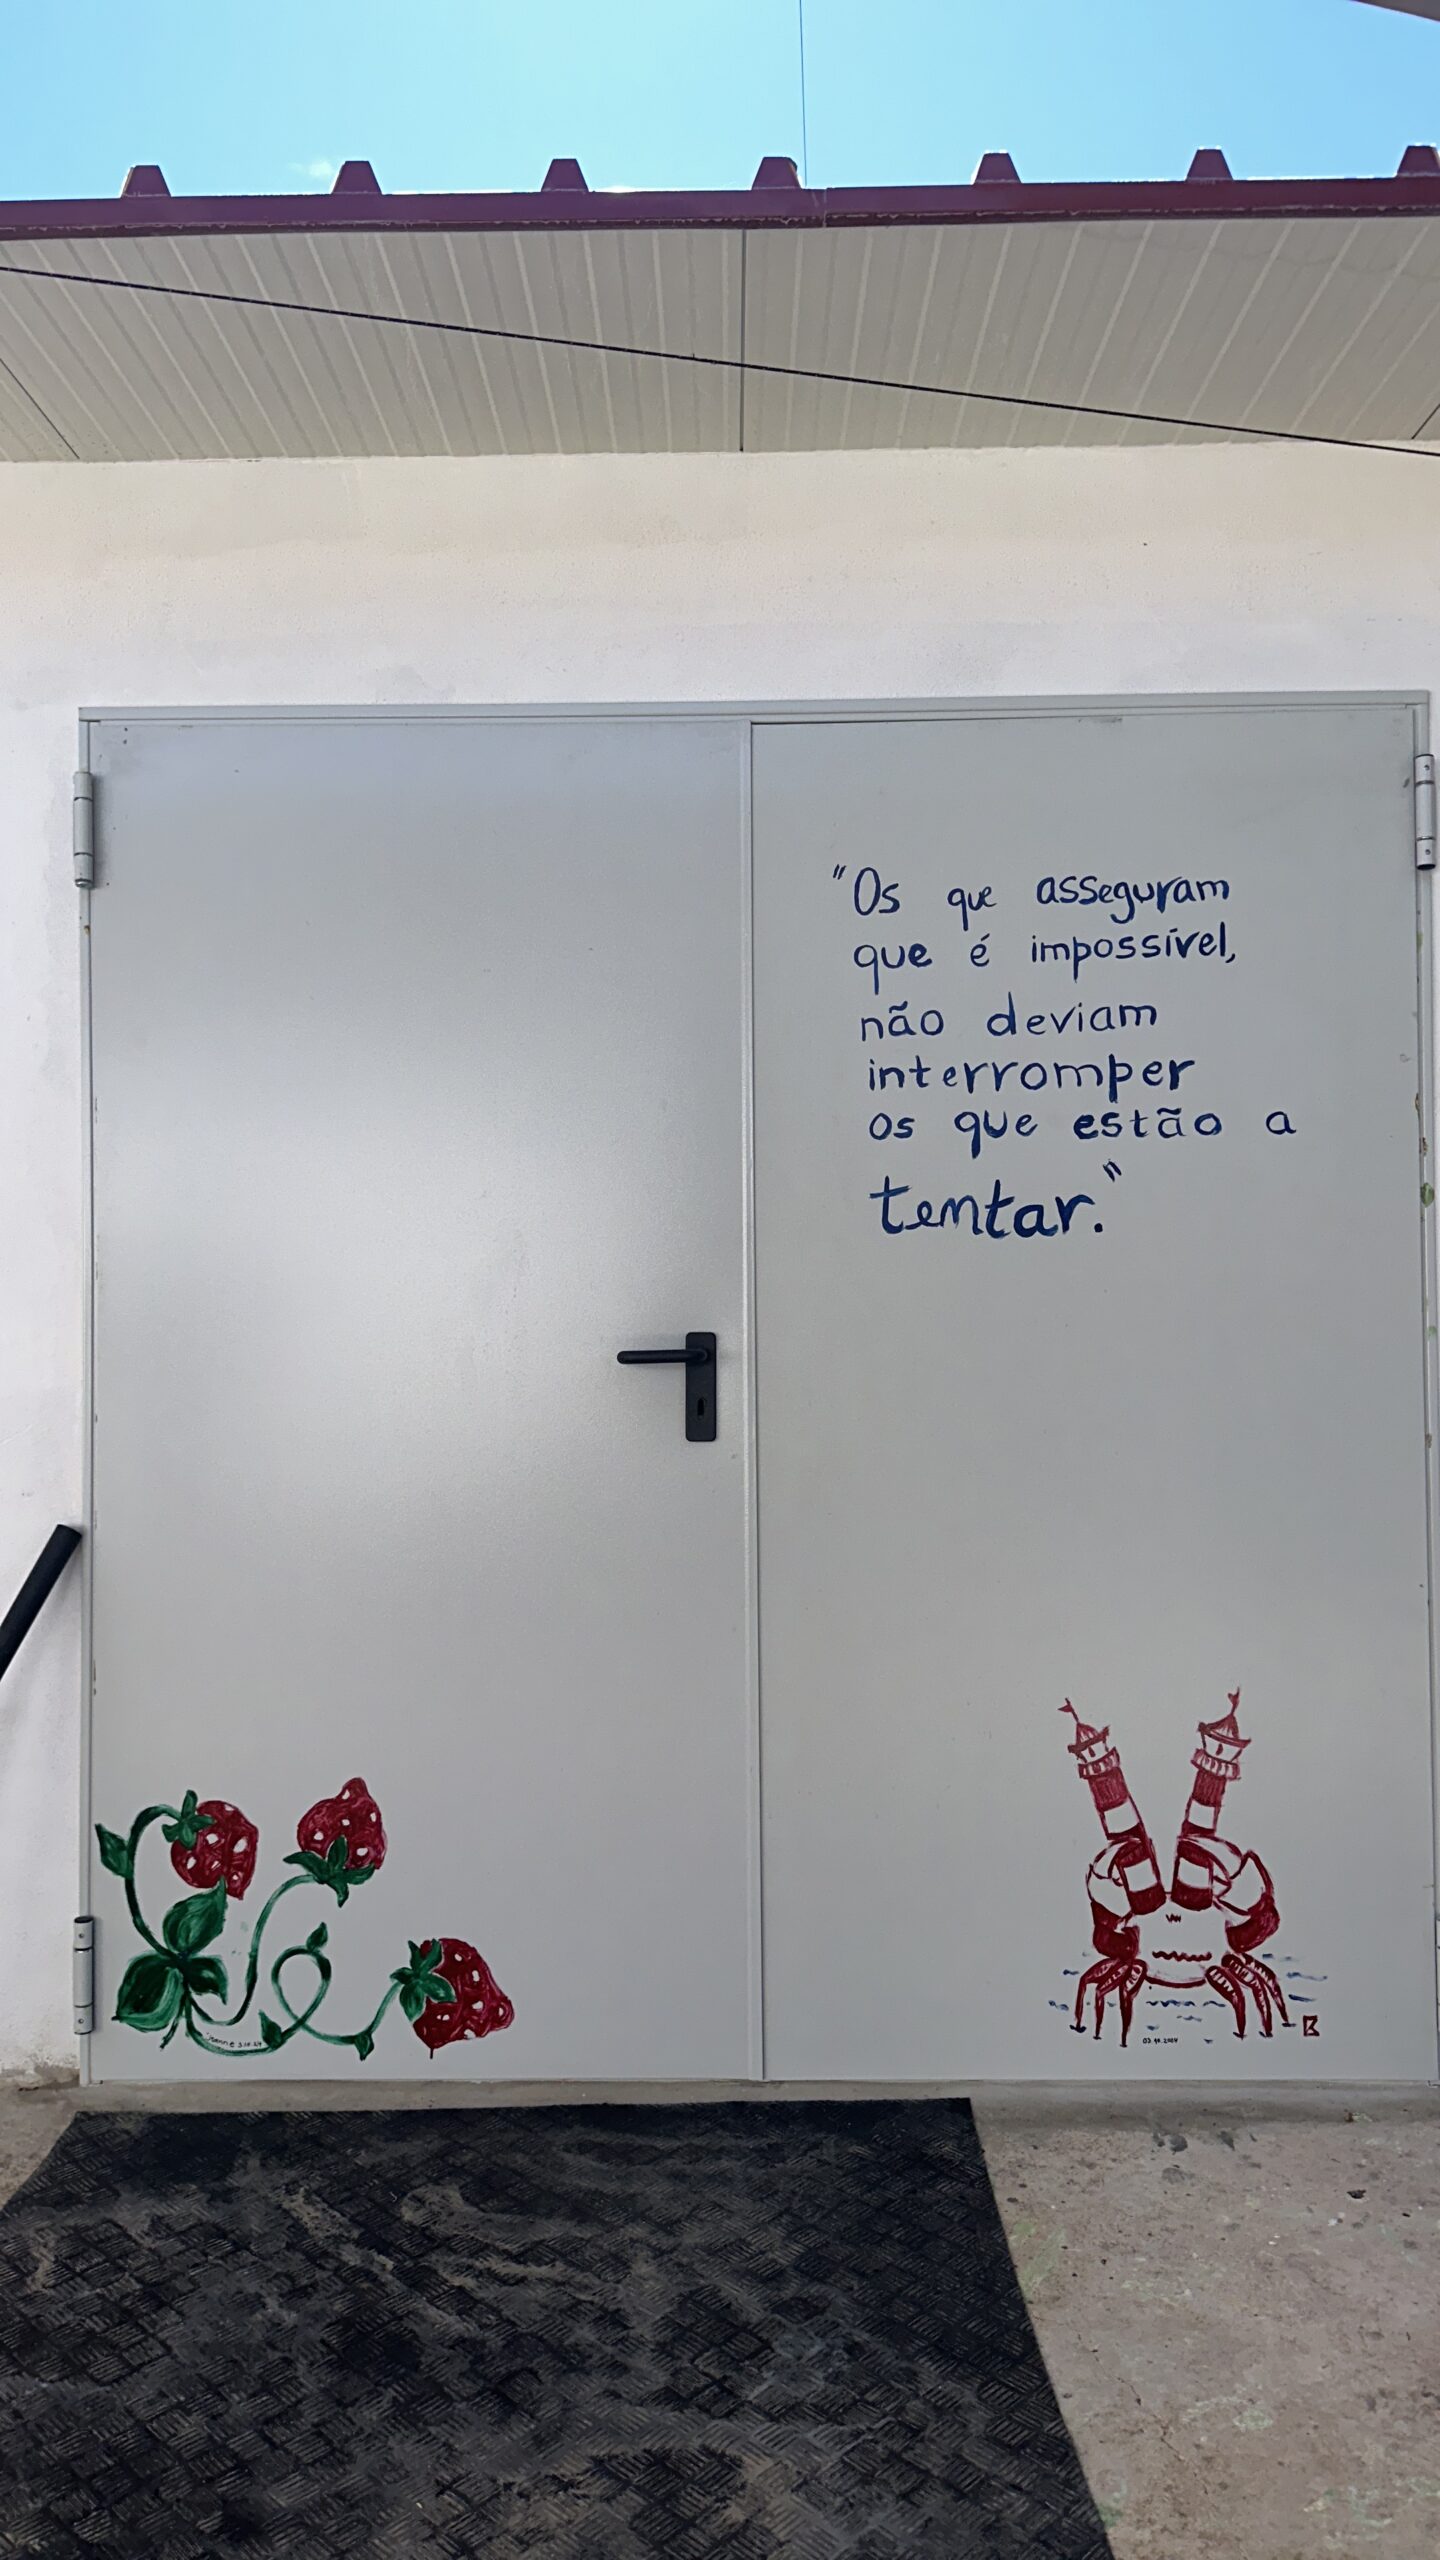 "Os que asseguram
que é impossível,
não deviam
interromper
os que estão a
tentar."
3.10.24
03.10.2024